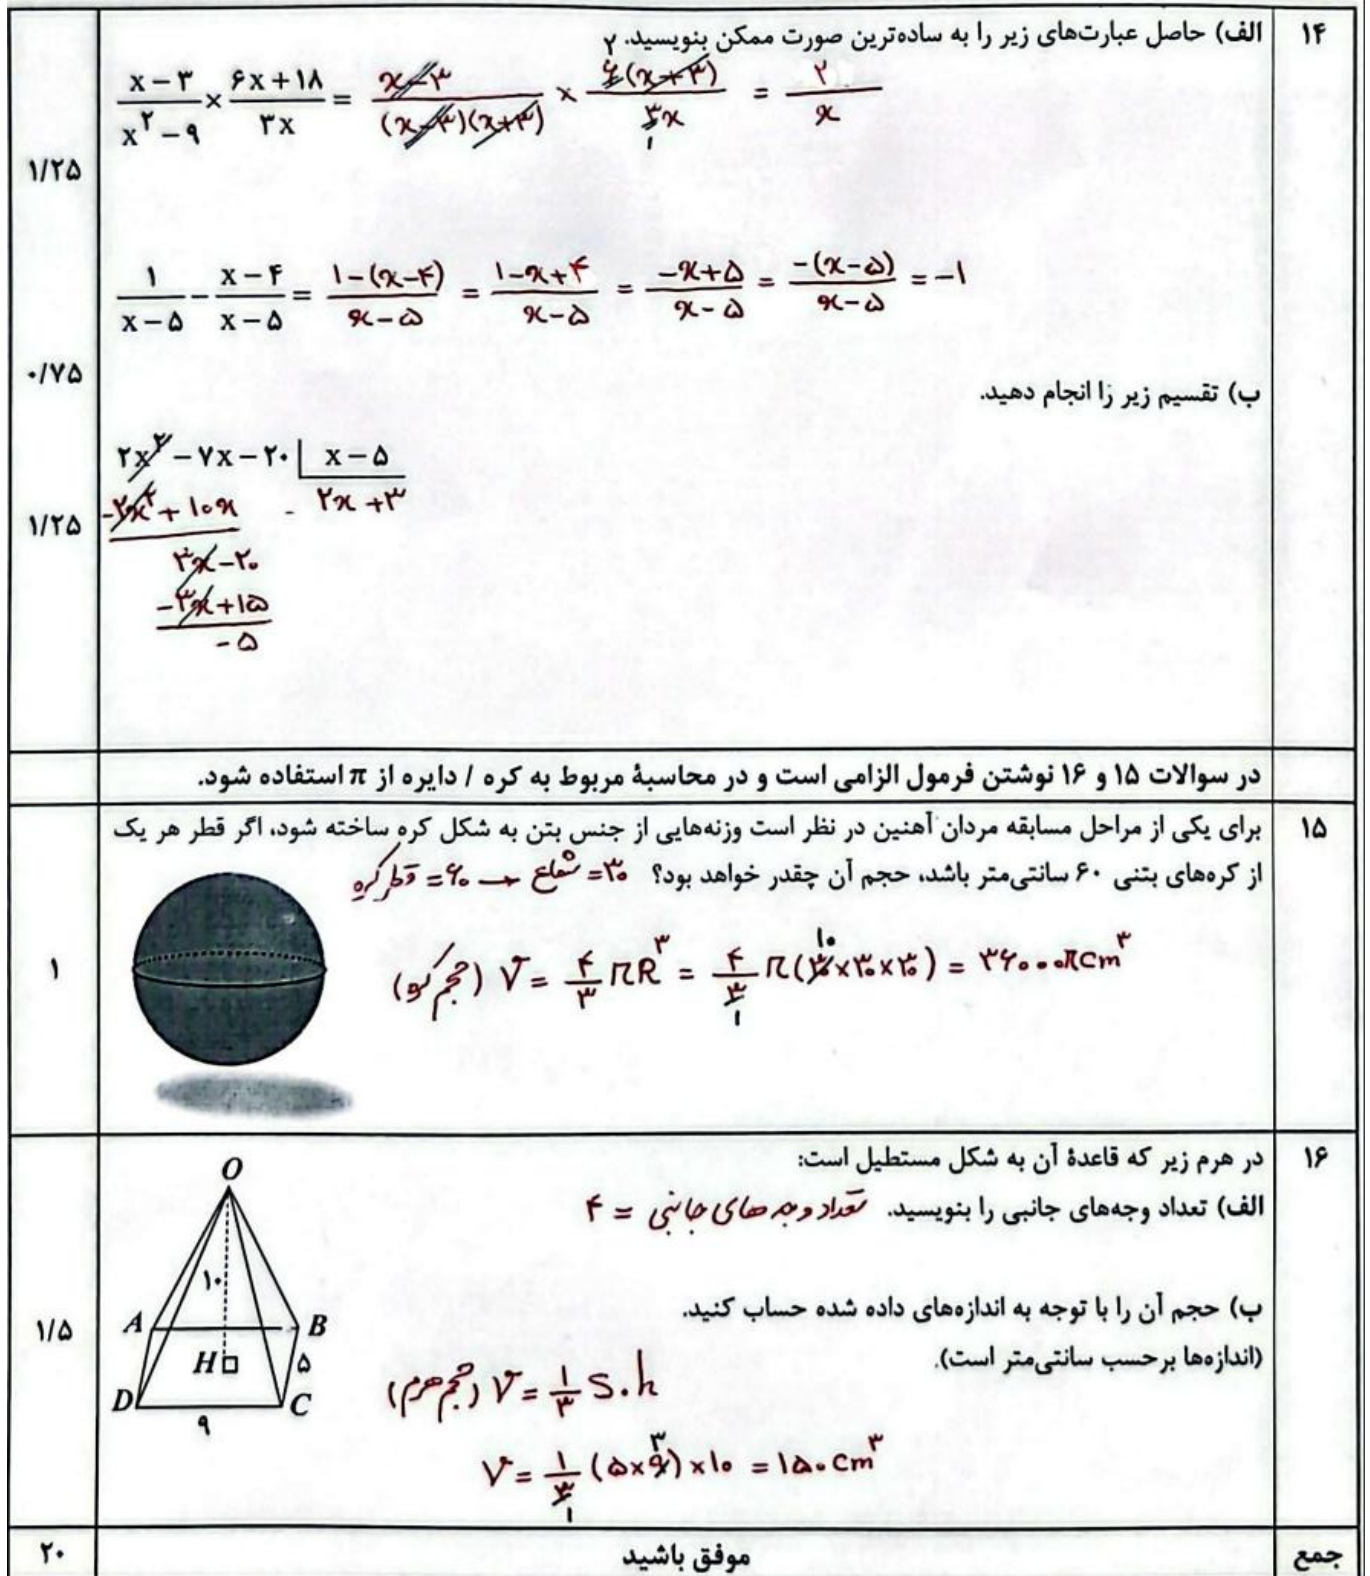 ۱۴
الف) حاصل عبارت‌های زیر را به ساده‌ترین صورت ممکن بنویسید.
۱/۲۵
(x − ۳)/(x^۲ − ۹) × (۶x + ۱۸)/(۳x) = (x − ۳)/((x − ۳)(x + ۳)) × (۶(x + ۳))/(۳x) = ۲/x
۲
۱
۱/(x − ۵) − (x − ۴)/(x − ۵) = (۱ − (x − ۴))/(x − ۵) = (۱ − x + ۴)/(x − ۵) = (−x + ۵)/(x − ۵) = (−(x − ۵))/(x − ۵) = −۱
۰/۷۵
ب) تقسیم زیر را انجام دهید.
۲x^۲ − ۷x − ۲۰ | x − ۵
−۲x^۲ + ۱۰x
۲x + ۳
۱/۲۵
۳x − ۲۰
−۳x + ۱۵
−۵
در سوالات ۱۵ و ۱۶ نوشتن فرمول الزامی است و در محاسبهٔ مربوط به کره / دایره از π استفاده شود.
۱۵
برای یکی از مراحل مسابقه مردان آهنین در نظر است وزنه‌هایی از جنس بتن به شکل کره ساخته شود، اگر قطر هر یک
از کره‌های بتنی ۶۰ سانتی‌متر باشد، حجم آن چقدر خواهد بود؟ قطر کره = ۶۰ → شعاع = ۳۰
۱
(حجم کره) V = ۴/۳ πR^۳ = ۴/۳ π(۳۰×۳۰×۳۰) = ۳۶۰۰۰π cm^۳
۱۰
۱
۱۶
در هرم زیر که قاعدهٔ آن به شکل مستطیل است:
الف) تعداد وجه‌های جانبی را بنویسید. تعداد وجه های جانبی = ۴
ب) حجم آن را با توجه به اندازه‌های داده شده حساب کنید.
(اندازه‌ها برحسب سانتی‌متر است).
۱/۵
O
۱۰
A B
H ۵
D C
۹
(حجم هرم) V = ۱/۳ S.h
V = ۱/۳ (۵×۹)×۱۰ = ۱۵۰ cm^۳
۳
۱
جمع
موفق باشید
۲۰